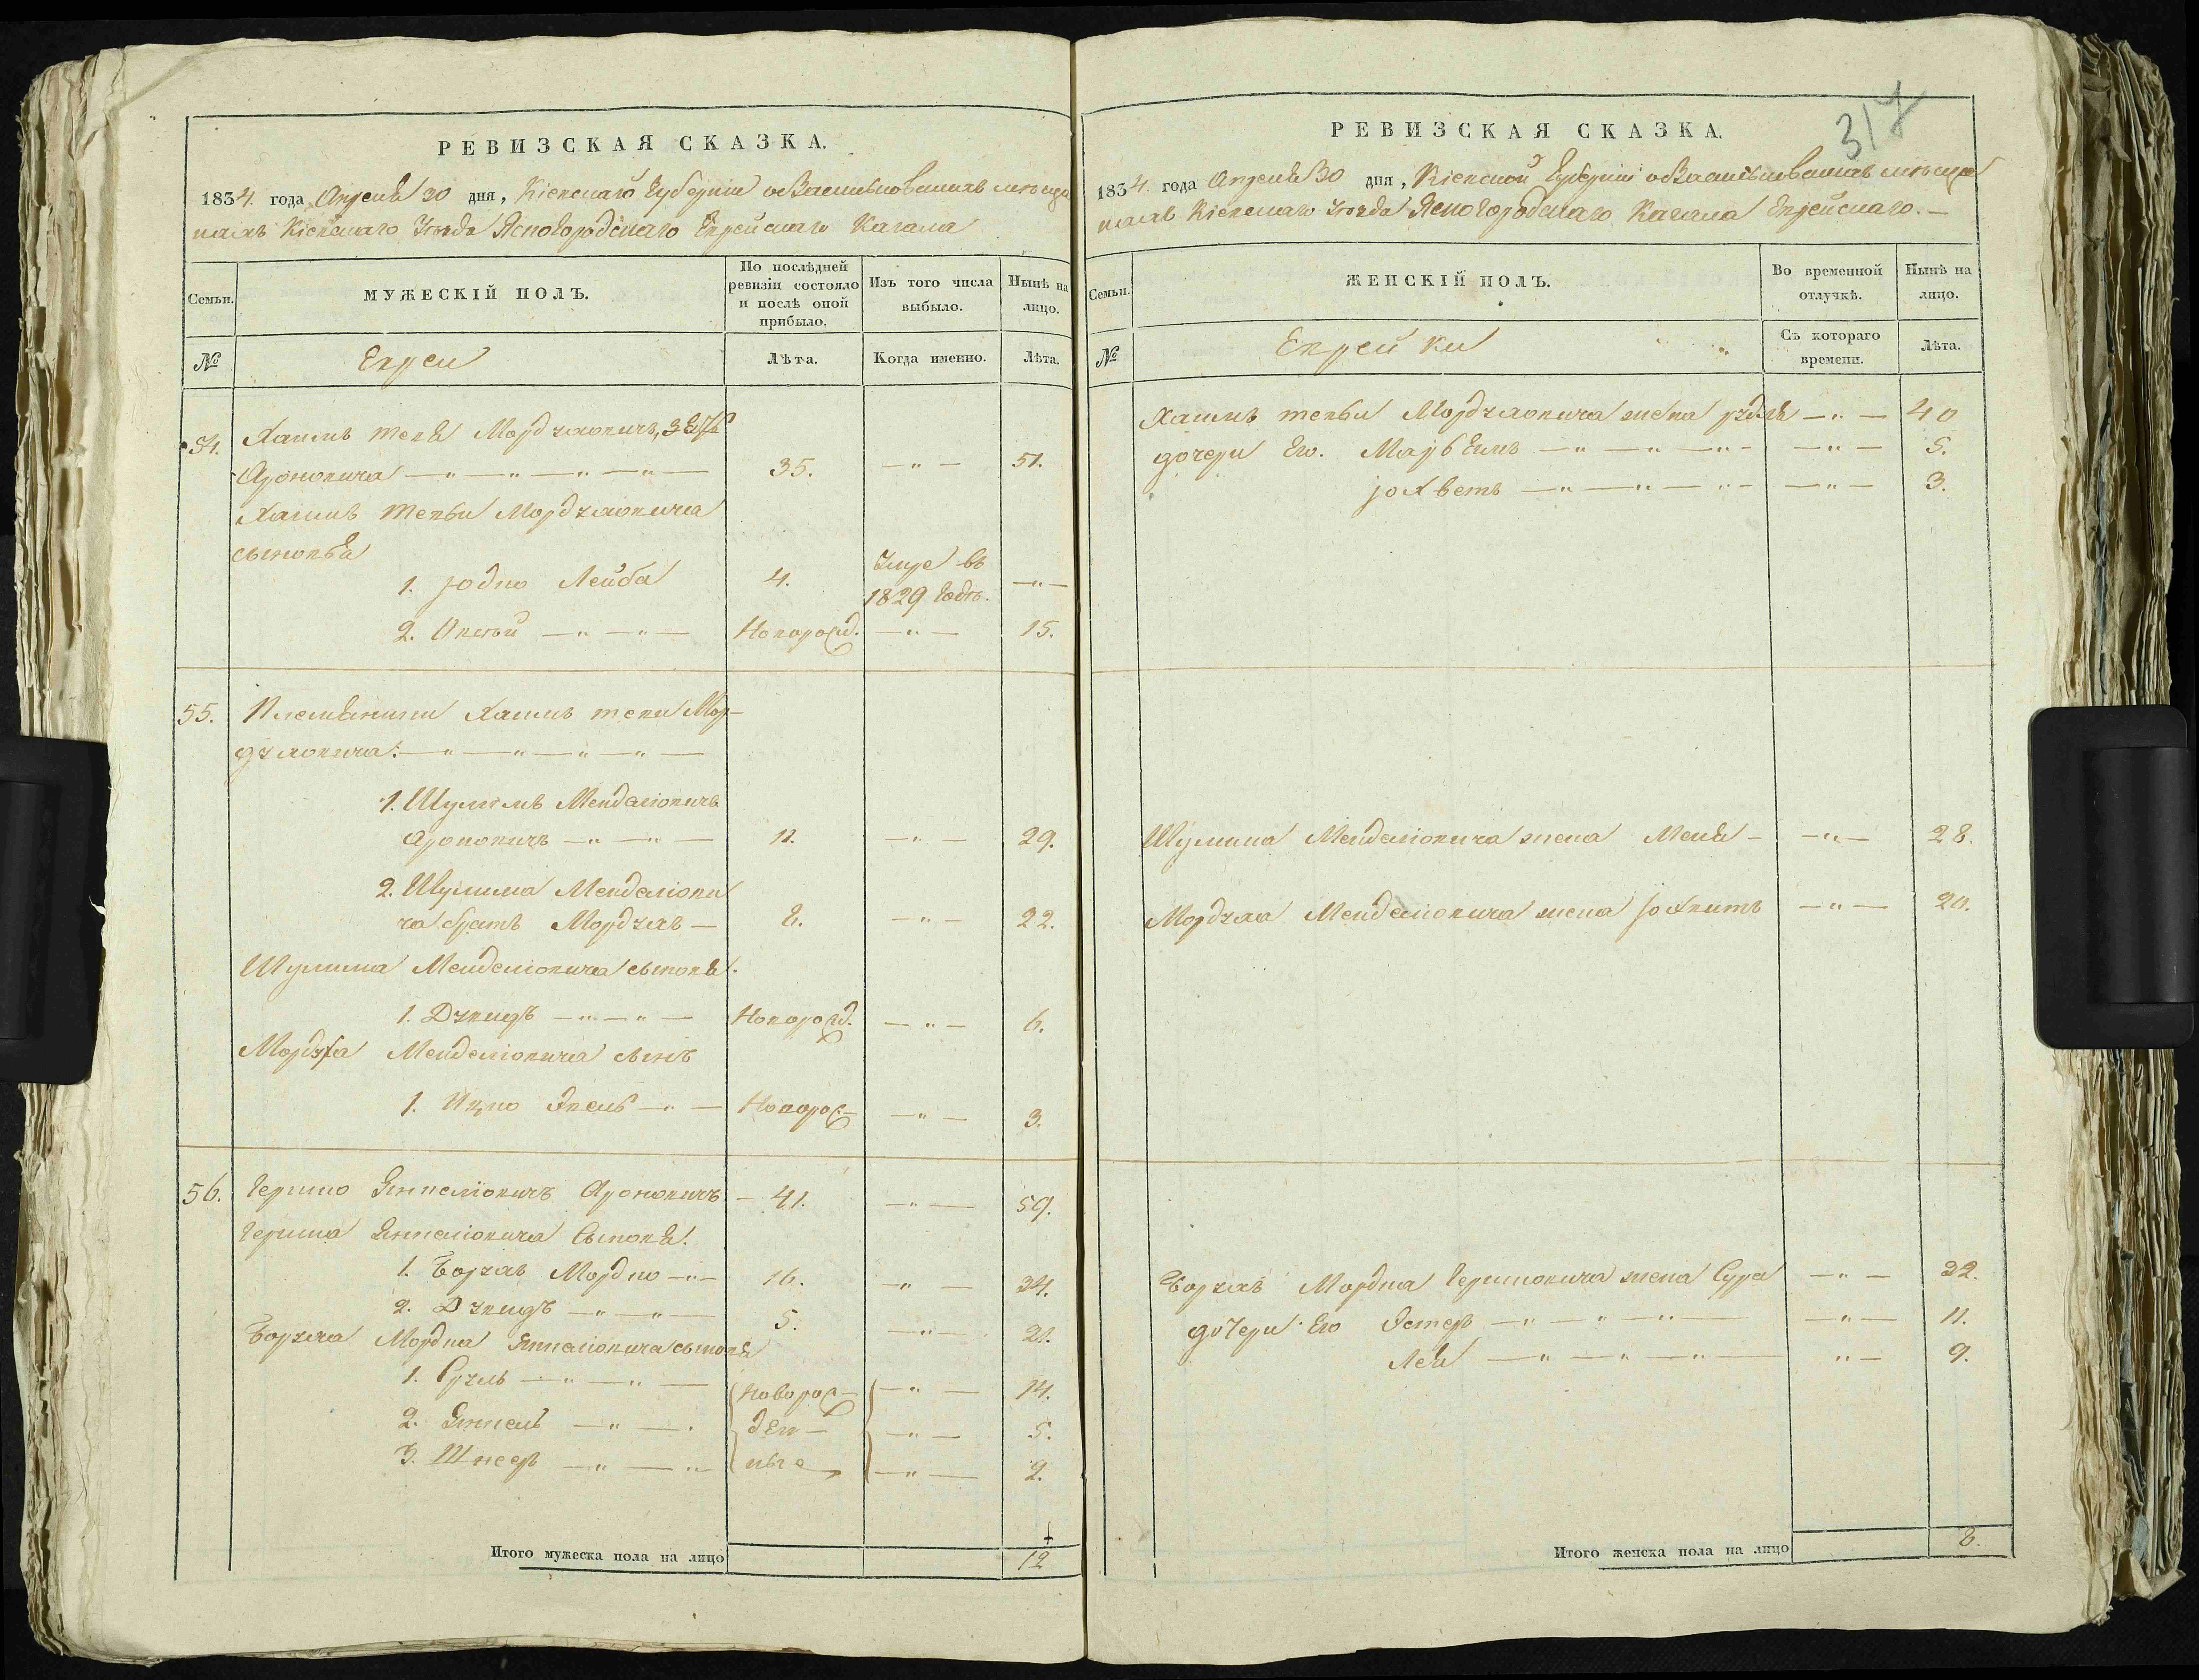 РЕВИЗСКАЯ СКАЗКА.
1834. года Апреля 30 дня, Кіевскаго Губерніи о мѣща
нахъ Кіевскаго Уѣзда Ясногородскаго Еврейскаго Кагала
Семьи.
МУЖЕСКІЙ ПОЛЪ.
По послѣдней
ревизіи состояло
и послѣ оной
прибыло.
Изъ того числа
выбыло.
Нынѣ на
лицо.
№
Евреи
Лѣта.
Когда именно.
Лѣта.
54.
Хаимъ Тевя Мордхаовичъ,
Ароновича 35. 51.
Хаимъ Тевьи Мордхаовича
сыновья
1. Лейба 4. Умре въ
1829 годѣ.
2. Овсѣй Новорожд. 15.
55. Племянники Хаимъ Теви Мор-
дхаовича:
1. Шулимъ Менделіовичъ
Ароновичъ 11. 29.
2. Шулима Менделіови
ча братъ Мордхай 8. 22.
Шулима Менделіовича сыновя.
1. Новорожд. 6.
Мордха Менделіовича сынъ
1. Ицко Новорож- 3.
56. Гершко Ароновичъ 41. 59.
Гершка сыновя.
1. Борхъ Мордко 16. 34.
2. 5. 21.
Борха Мордка сыновя
1. Сруль Новорож- 14.
2. ден- 5.
3. Шнеер ные 2.
Итого мужеска пола на лицо 12
317
РЕВИЗСКАЯ СКАЗКА.
1834. года Апреля 30 дня, Кіевской Губерніи о мѣща
нахъ Кіевскаго Уѣзда Ясногородскаго Кагала Еврейскаго.
Семьи.
ЖЕНСКІЙ ПОЛЪ.
Во временной
отлучкѣ.
Нынѣ на
лицо.
№
Еврейки
Съ котораго
времени.
Лѣта.
Хаимъ Тевьи Мордхаовича жена 40
дочери Его. 5.
3.
Шулима Менделіовича жена 28.
Мордха Менделіовича жена 20.
Борхъ Мордка Гершковича жена Сура 32.
дочери Его Эстеръ 11.
Лея 9.
Итого женска пола на лицо 8.